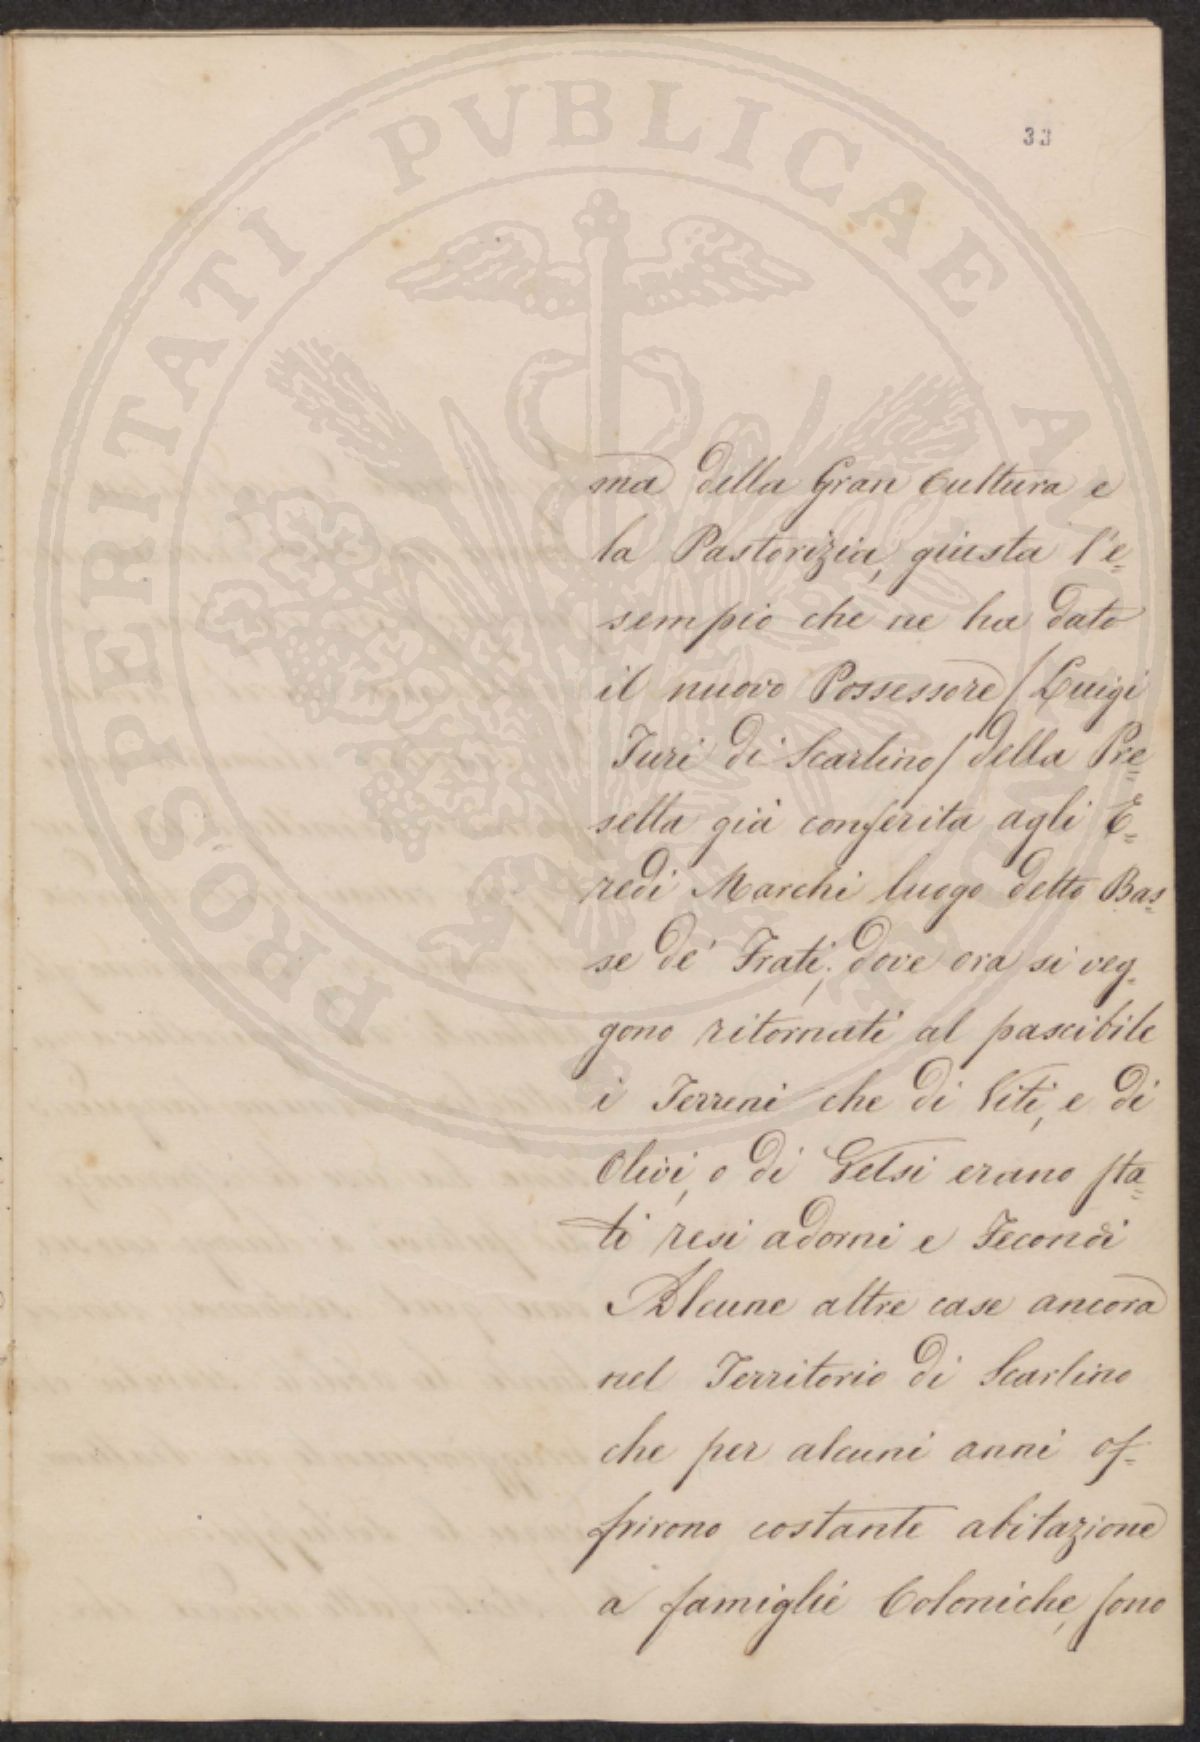 PROSPERITATI PVBLICAE
33
ma della Gran Cultura e
la Pastorizia, giusta l'e=
sempio che ne ha dato
il nuovo Possessore / Luigi
Turi di Scarlino / della Pre=
sella già conferita agli E=
redi Marchi luogo detto Bas=
se de' Frati; dove ora si veg=
gono ritornati al pascibile
i Terreni che di Viti, e di
Olivi, o di Gelsi erano sta=
ti resi adorni e Fecondi
Alcune altre case ancora
nel Territorio di Scarlino
che per alcuni anni of=
frirono costante abitazione
a famiglie Coloniche, sono